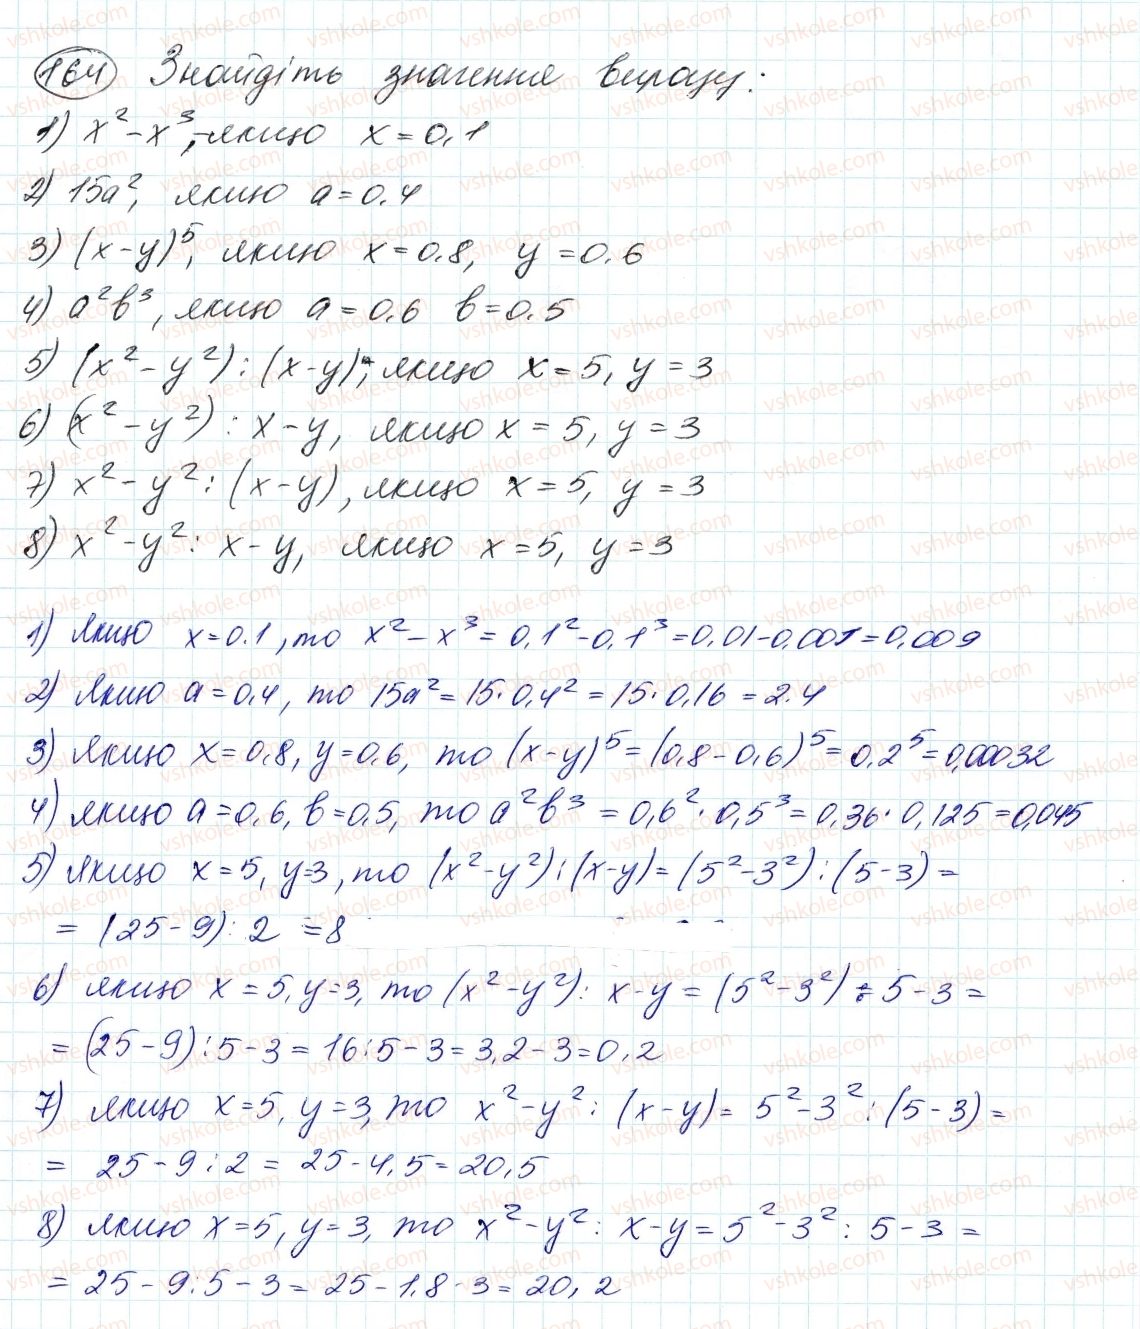 164 Знайдіть значення виразу:
1) x² - x³, якщо x = 0,1
2) 15a², якщо a = 0.4
3) (x - y)⁵, якщо x = 0.8, y = 0.6
4) a²b³, якщо a = 0.6 b = 0.5
5) (x² - y²) : (x - y), якщо x = 5, y = 3
6) (x² - y²) : x - y, якщо x = 5, y = 3
7) x² - y² : (x - y), якщо x = 5, y = 3
8) x² - y² : x - y, якщо x = 5, y = 3
1) Якщо x = 0.1, то x² - x³ = 0,1² - 0,1³ = 0,01 - 0,001 = 0,009
2) Якщо a = 0,4, то 15a² = 15 · 0,4² = 15 · 0,16 = 2.4
3) Якщо x = 0,8, y = 0.6, то (x - y)⁵ = (0,8 - 0,6)⁵ = 0,2⁵ = 0,00032
4) якщо a = 0,6, b = 0,5, то a²b³ = 0,6² · 0,5³ = 0,36 · 0,125 = 0,045
5) якщо x = 5, y = 3, то (x² - y²) : (x - y) = (5² - 3²) : (5 - 3) =
= (25 - 9) : 2 = 8
6) якщо x = 5, y = 3, то (x² - y²) : x - y = (5² - 3²) : 5 - 3 =
= (25 - 9) : 5 - 3 = 16 : 5 - 3 = 3,2 - 3 = 0,2
7) якщо x = 5, y = 3, то x² - y² : (x - y) = 5² - 3² : (5 - 3) =
= 25 - 9 : 2 = 25 - 4,5 = 20,5
8) якщо x = 5, y = 3, то x² - y² : x - y = 5² - 3² : 5 - 3 =
= 25 - 9 : 5 - 3 = 25 - 1.8 - 3 = 20,2